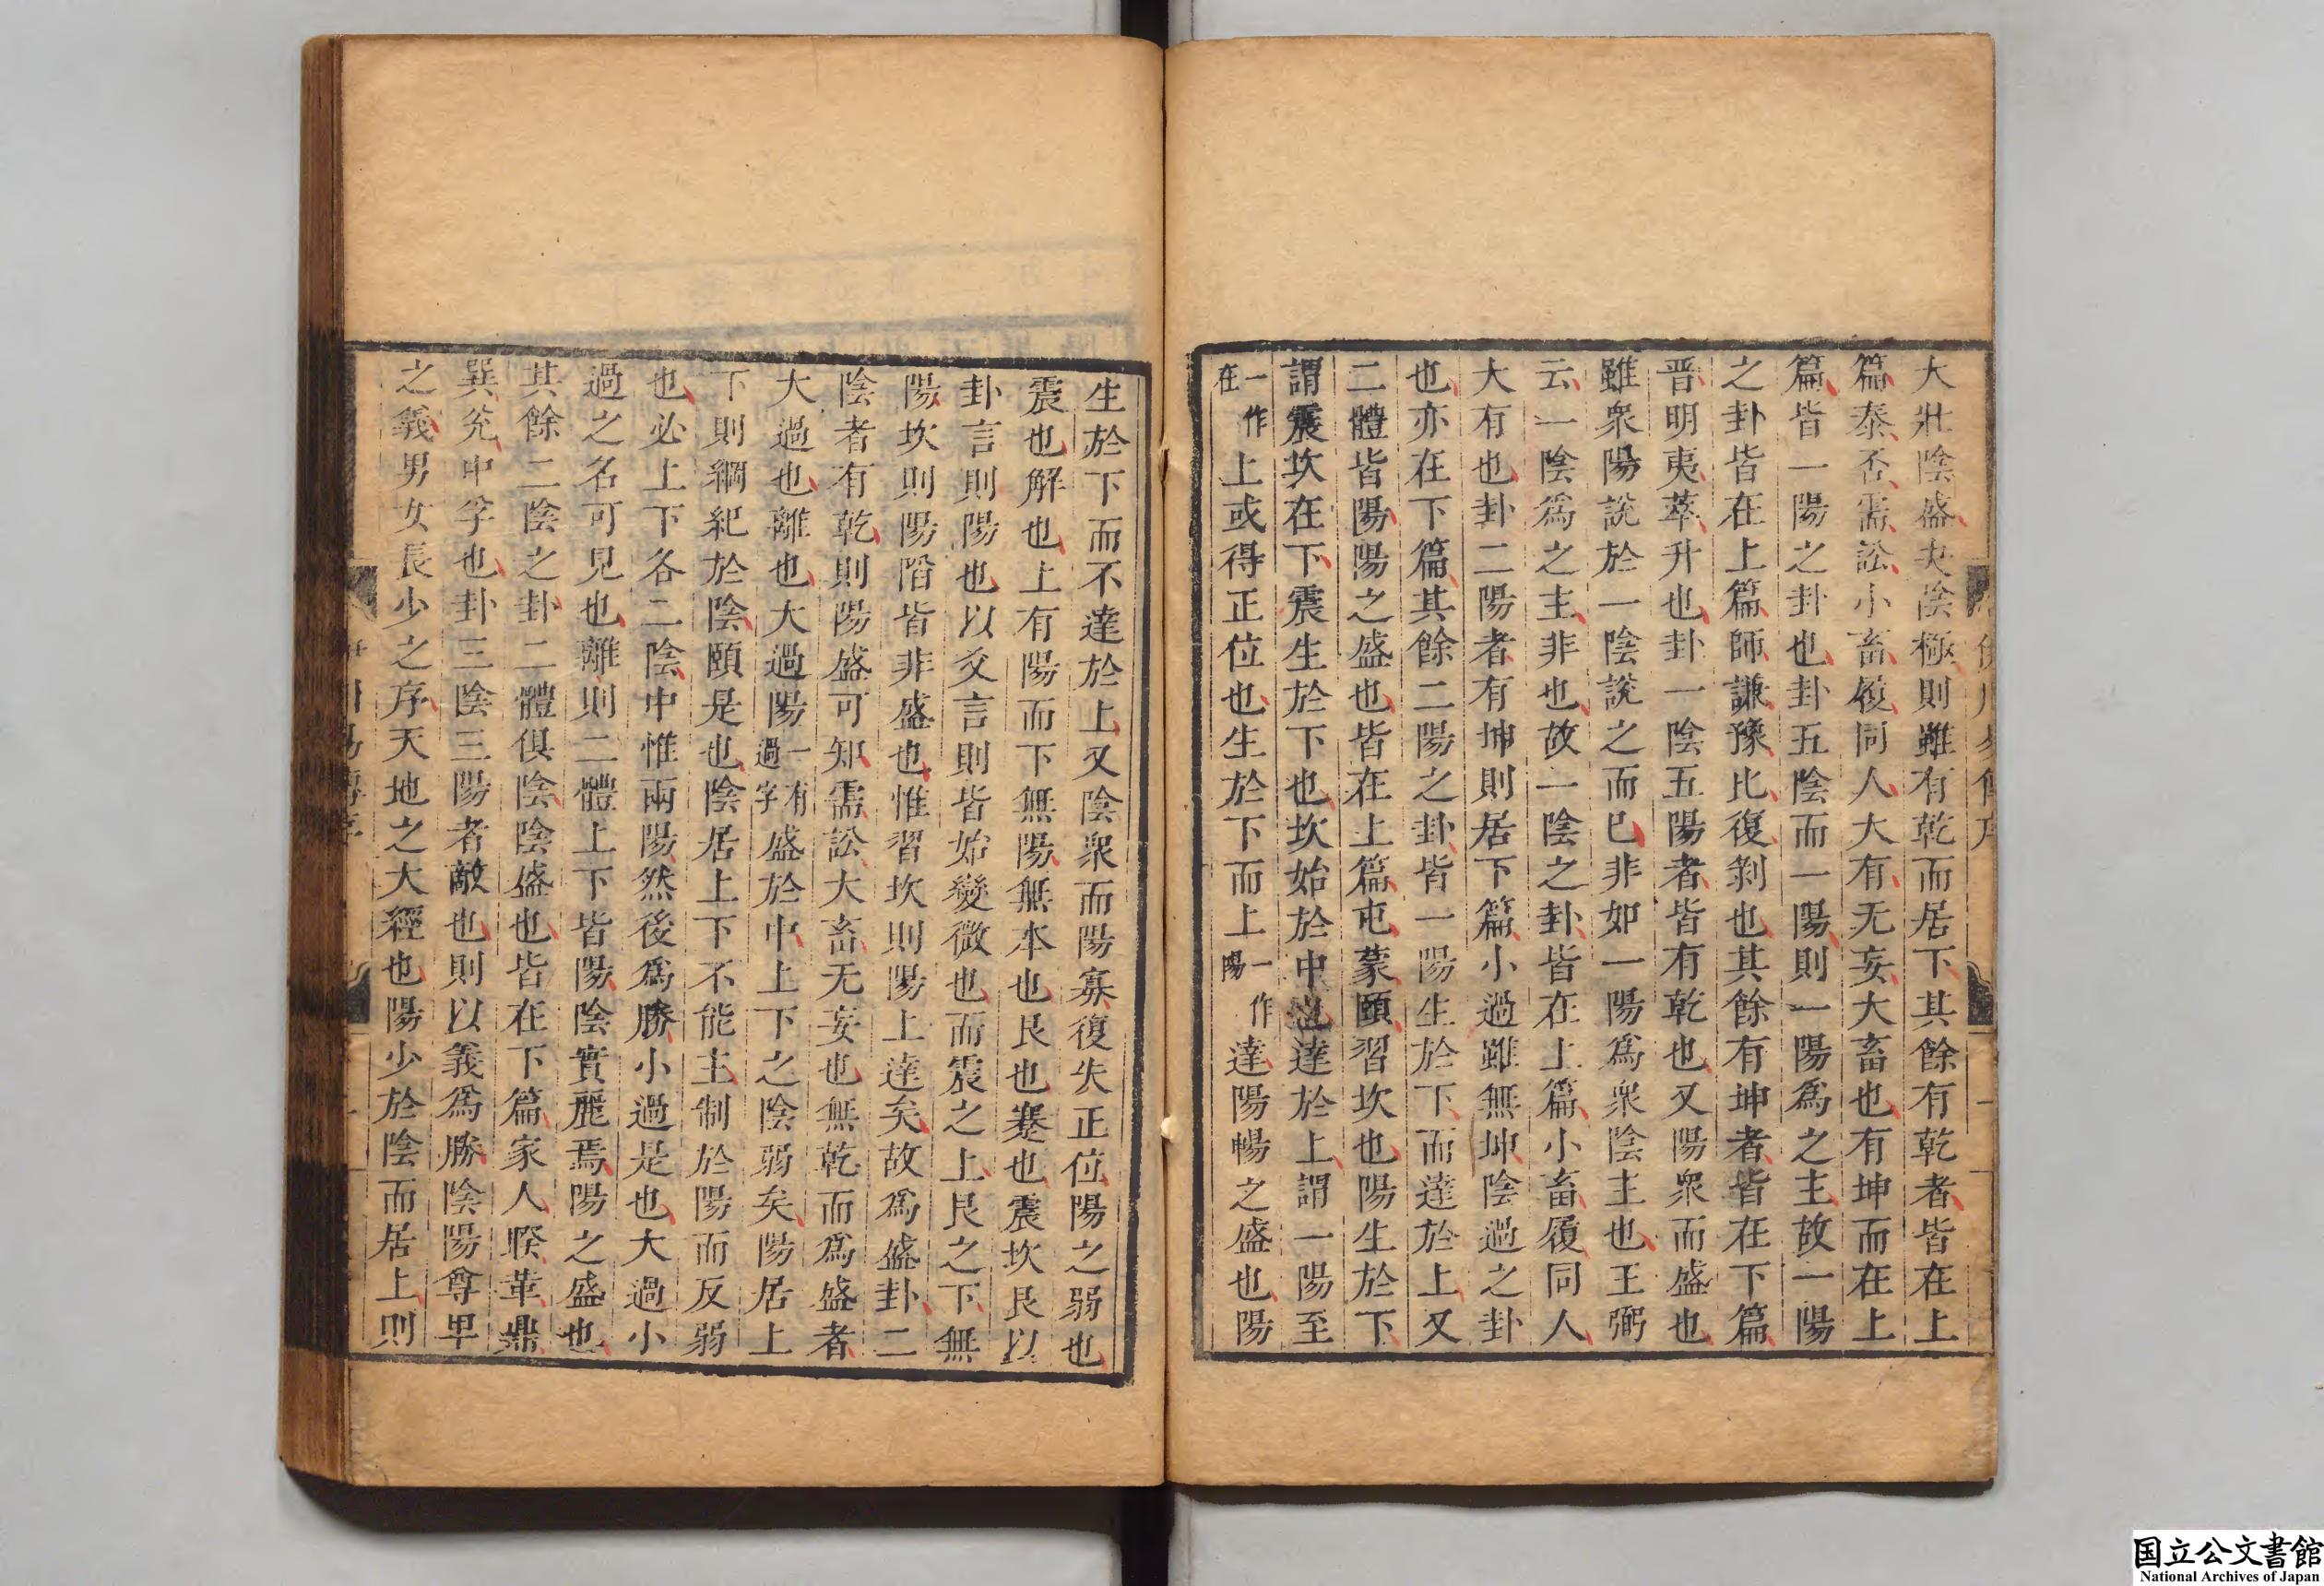 大壯陰盛夬陰極則雖有乾而居下其餘有乾者皆在上
篇泰否需訟小畜履同人大有无妄大畜也有坤而在上
篇皆一陽之卦也卦五陰而一陽則一陽爲之主故一陽
之卦皆在上篇師謙豫比復剝也其餘有坤者皆在下篇
晋明夷萃升也卦一陰五陽者皆有乾也又陽衆而盛也
雖衆陽說於一陰說之而已非如一陽爲衆陰主也王弼
云一陰爲之主非也故一陰之卦皆在上篇小畜履同人
大有也卦二陽者有坤則居下篇小過雖無坤陰過之卦
也亦在下篇其餘二陽之卦皆一陽生於下而達於上又
二體皆陽陽之盛也皆在上篇屯蒙頤習坎也陽生於下
謂震坎在下震生於下也坎始於中也達於上謂一陽至
一作在上或得正位也生於下而上一作陽達陽暢之盛也陽
生於下而不達於上又陰衆而陽寡復失正位陽之弱也
震也解也上有陽而下無陽無本也艮也蹇也震坎艮以
卦言則陽也以爻言則皆始變微也而震之上艮之下無
陽坎則陽陷皆非盛也惟習坎則陽上達矣故爲盛卦二
陰者有乾則陽盛可知需訟大畜无妄也無乾而爲盛者
大過也離也大過陽一有過字盛於中上下之陰弱矣陽居上
下則綱紀於陰頤是也陰居上下不能主制於陽而反弱
也必上下各二陰中惟兩陽然後爲勝小過是也大過小
過之名可見也離則二體上下皆陽陰實麗焉陽之盛也
其餘二陰之卦二體俱陰陰盛也皆在下篇家人睽革鼎
巽兌中孚也卦三陰三陽者敵也則以義爲勝陰陽尊卑
之義男女長少之序天地之大經也陽少於陰而居上則
国立公文書館
National Archives of Japan